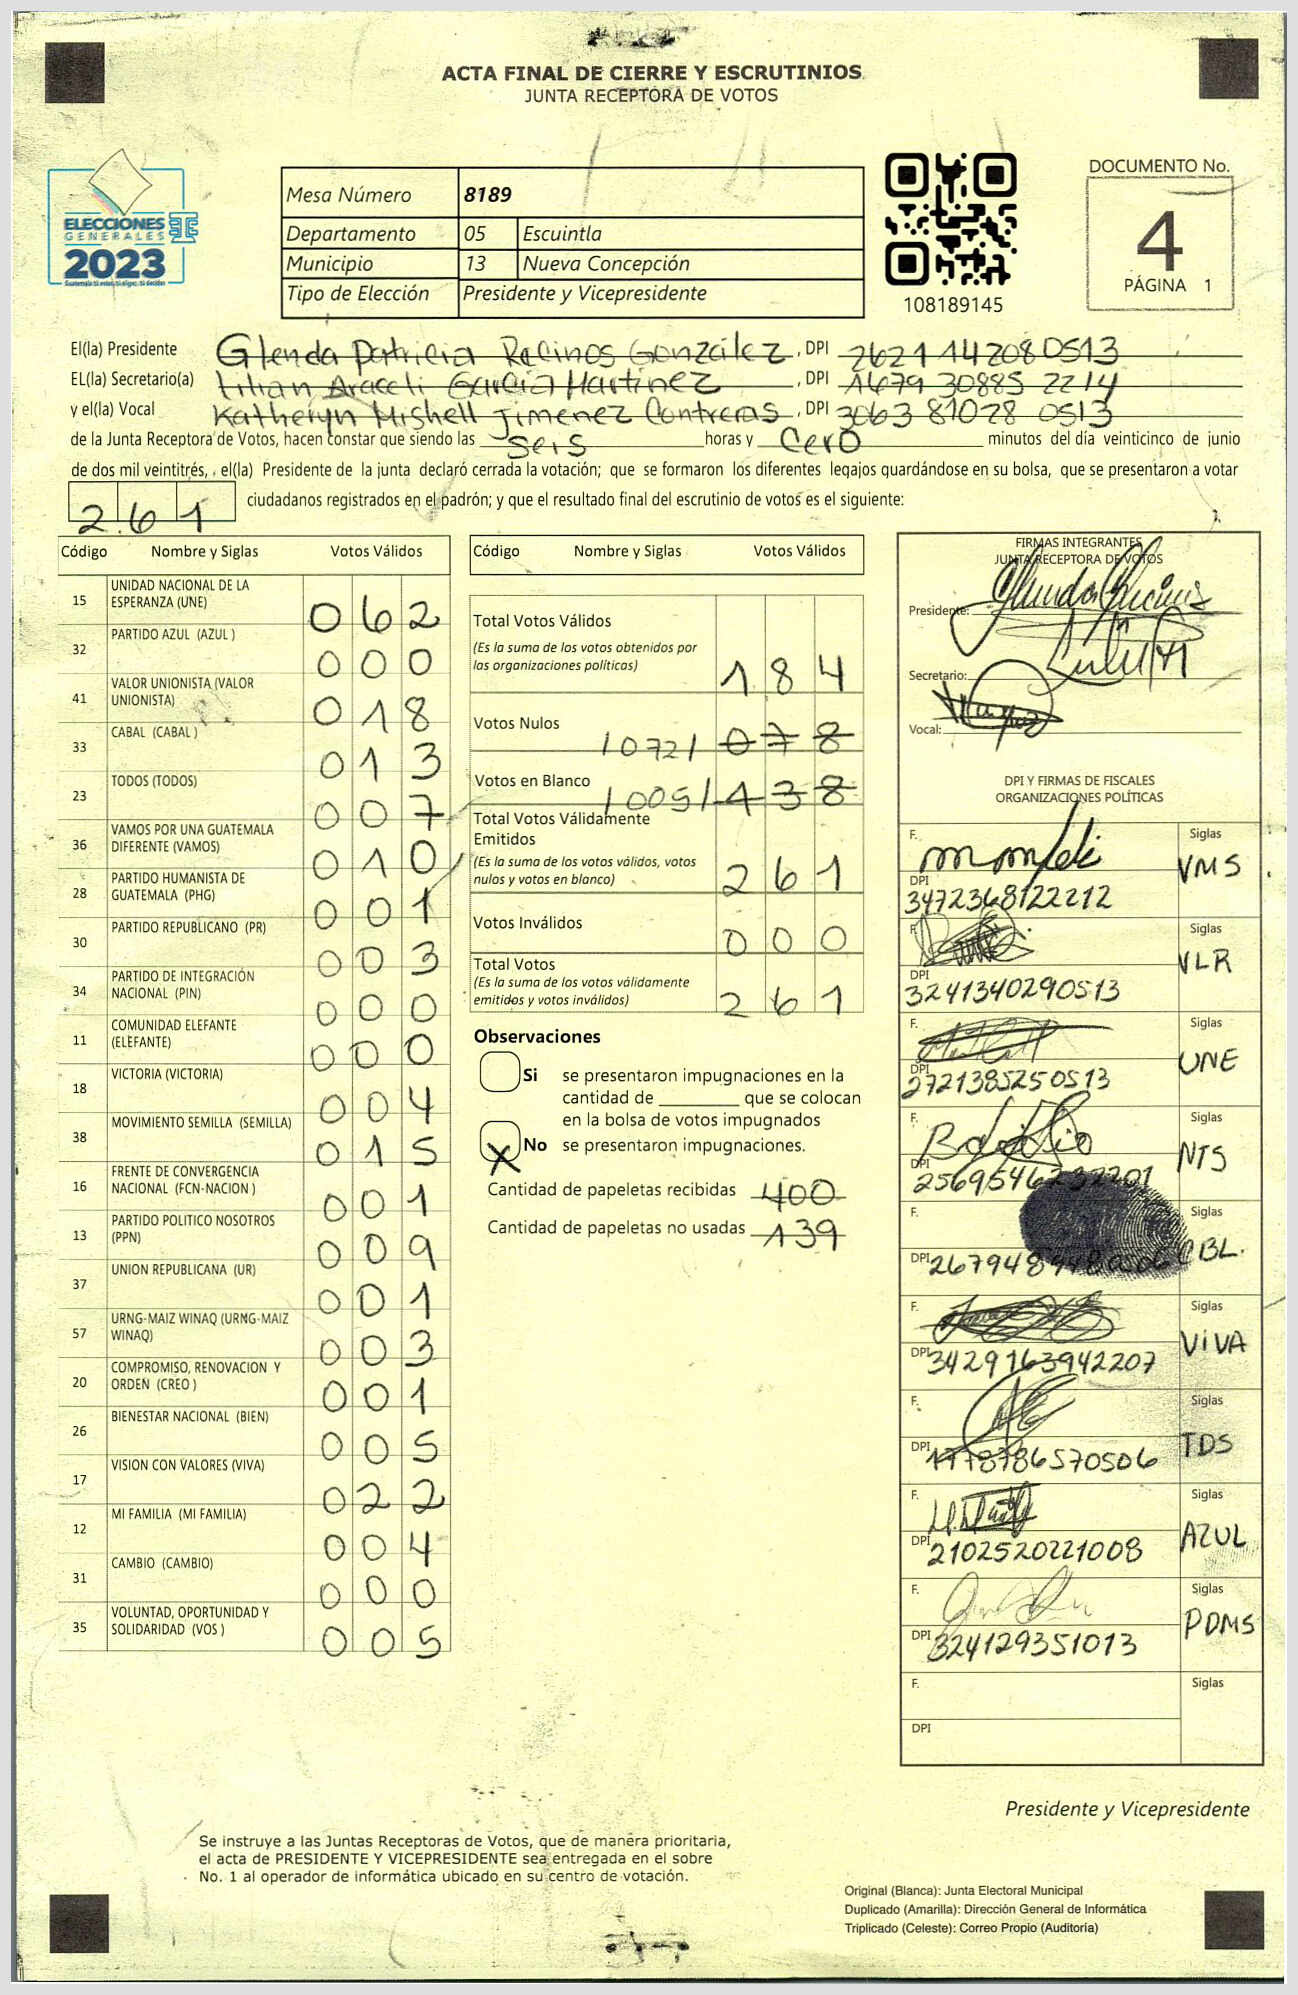 ACTA FINAL DE CIERRE Y ESCRUTINIOS
JUNTA RECEPTORA DE VOTOS
ELECCIONES
GENERALES
2023
Mesa Número 8189
Departamento 05 Escuintla
Municipio 13 Nueva Concepción
Tipo de Elección Presidente y Vicepresidente
108189145
DOCUMENTO No.
4
PÁGINA 1
El(la) Presidente Glenda Patricia Recinos González, DPI 2621 14208 0513
EL(la) Secretario(a) Lilian Araceli Garcia Martinez, DPI 1679 30885 2214
y el(la) Vocal Katheryn Mishell Jimenez Contreras, DPI 3063 81028 0513
de la Junta Receptora de Votos, hacen constar que siendo las seis horas y cero minutos del día veinticinco de junio
de dos mil veintitrés, el(la) Presidente de la junta declaró cerrada la votación; que se formaron los diferentes legajos guardándose en su bolsa, que se presentaron a votar
261 ciudadanos registrados en el padrón; y que el resultado final del escrutinio de votos es el siguiente:
Código Nombre y Siglas Votos Válidos
15 UNIDAD NACIONAL DE LA ESPERANZA (UNE) 062
32 PARTIDO AZUL (AZUL ) 000
41 VALOR UNIONISTA (VALOR UNIONISTA) 018
33 CABAL (CABAL ) 013
23 TODOS (TODOS) 007
36 VAMOS POR UNA GUATEMALA DIFERENTE (VAMOS) 010
28 PARTIDO HUMANISTA DE GUATEMALA (PHG) 001
30 PARTIDO REPUBLICANO (PR) 003
34 PARTIDO DE INTEGRACIÓN NACIONAL (PIN) 000
11 COMUNIDAD ELEFANTE (ELEFANTE) 000
18 VICTORIA (VICTORIA) 004
38 MOVIMIENTO SEMILLA (SEMILLA) 015
16 FRENTE DE CONVERGENCIA NACIONAL (FCN-NACION ) 001
13 PARTIDO POLITICO NOSOTROS (PPN) 009
37 UNION REPUBLICANA (UR) 001
57 URNG-MAIZ WINAQ (URNG-MAIZ WINAQ) 003
20 COMPROMISO, RENOVACION Y ORDEN (CREO ) 001
26 BIENESTAR NACIONAL (BIEN) 005
17 VISION CON VALORES (VIVA) 022
12 MI FAMILIA (MI FAMILIA) 004
31 CAMBIO (CAMBIO) 000
35 VOLUNTAD, OPORTUNIDAD Y SOLIDARIDAD (VOS ) 005
Código Nombre y Siglas Votos Válidos
Total Votos Válidos 184
(Es la suma de los votos obtenidos por
las organizaciones políticas)
Votos Nulos /072/ 078
Votos en Blanco /005/ 438
Total Votos Válidamente
Emitidos 261
(Es la suma de los votos válidos, votos
nulos y votos en blanco)
Votos Inválidos 000
Total Votos 261
(Es la suma de los votos válidamente
emitidos y votos inválidos)
Observaciones
Si se presentaron impugnaciones en la
cantidad de ________ que se colocan
en la bolsa de votos impugnados
X No se presentaron impugnaciones.
Cantidad de papeletas recibidas 400
Cantidad de papeletas no usadas 139
FIRMAS INTEGRANTES
JUNTA RECEPTORA DE VOTOS
Presidente:
Secretario:
Vocal:
DPI Y FIRMAS DE FISCALES
ORGANIZACIONES POLÍTICAS
F. Siglas VMS
DPI 3472368122212
F. Siglas VLR
DPI 3241340290513
F. Siglas UNE
DPI 2721385250513
F. Siglas NTS
DPI 2569546232201
F. Siglas CBL.
DPI
F. Siglas VIVA
DPI 3429163942207
F. Siglas TDS
DPI 1778786570506
F. Siglas AZUL
DPI 2102520221008
F. Siglas PDMS
DPI 324129351013
F. Siglas
DPI
Presidente y Vicepresidente
Se instruye a las Juntas Receptoras de Votos, que de manera prioritaria,
el acta de PRESIDENTE Y VICEPRESIDENTE sea entregada en el sobre
No. 1 al operador de informática ubicado en su centro de votación.
Original (Blanca): Junta Electoral Municipal
Duplicado (Amarilla): Dirección General de Informática
Triplicado (Celeste): Correo Propio (Auditoría)